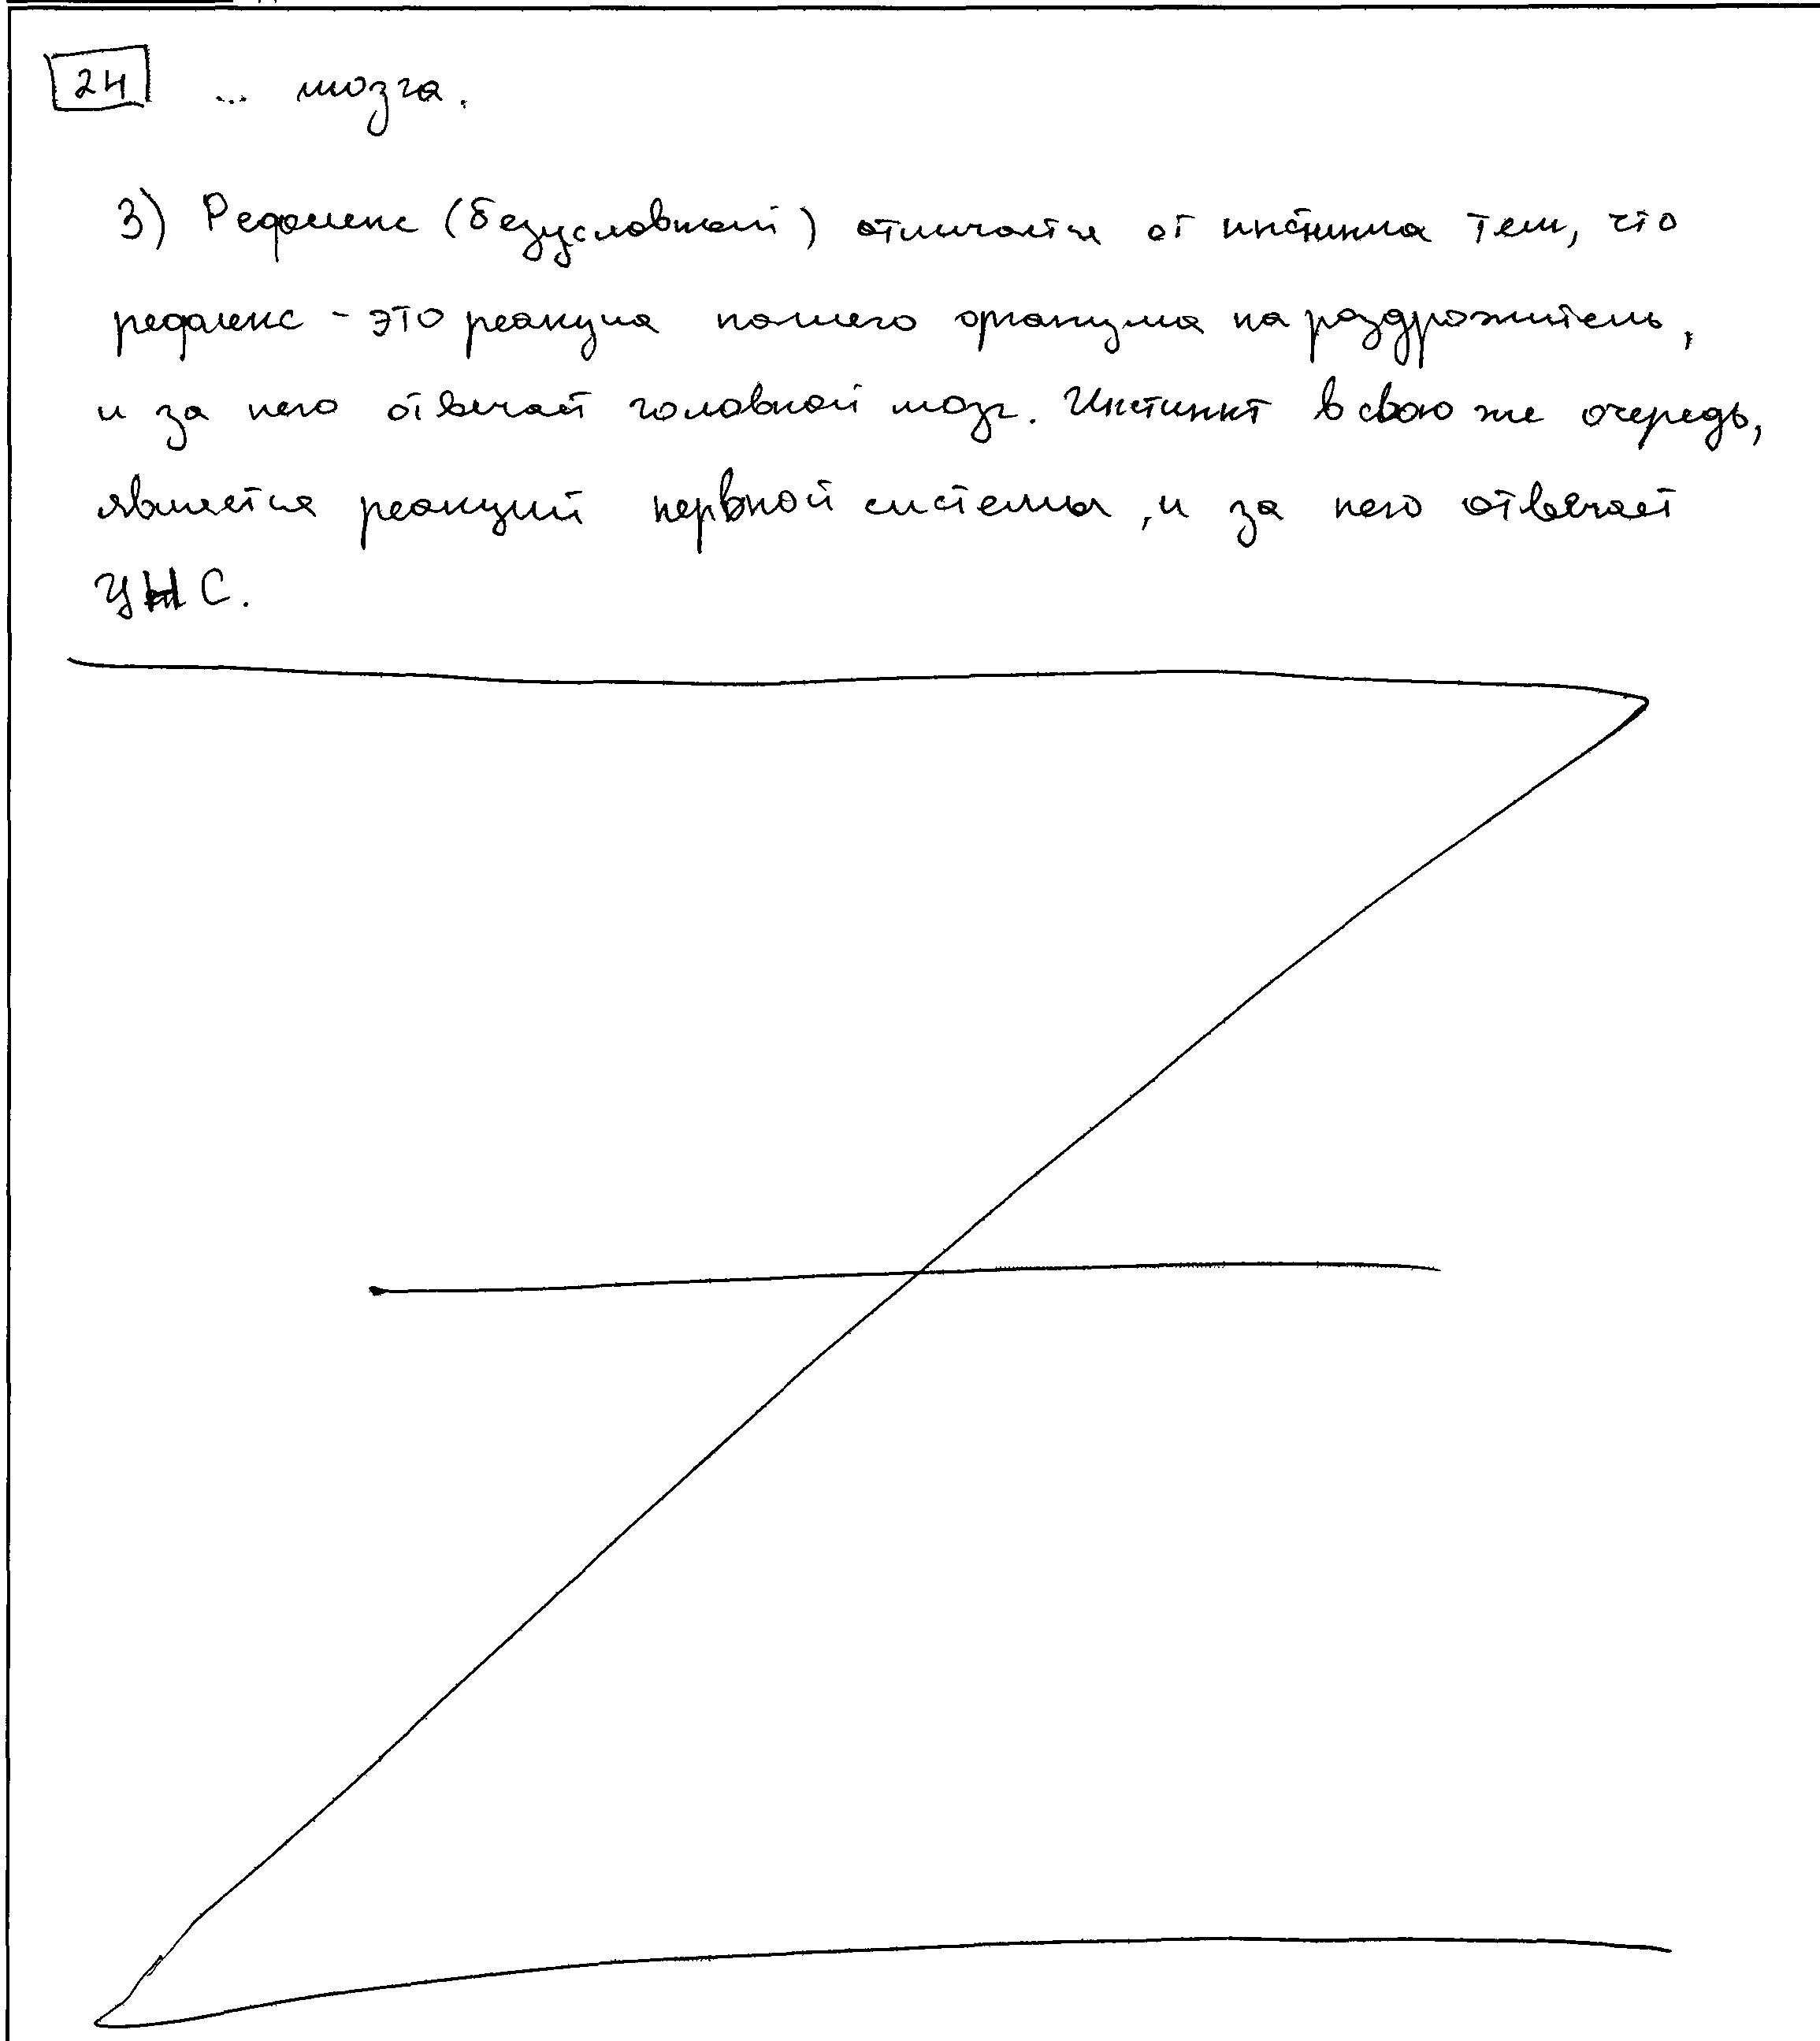 24 ... мозга.
3) Рефлекс (безусловный) отличается от инстинкта тем, что
рефлекс - это реакция нашего организма на раздражитель,
и за него отвечает головной мозг. Инстинкт в свою же очередь,
является реакций нервной системы, и за него отвечает
ЦНС.